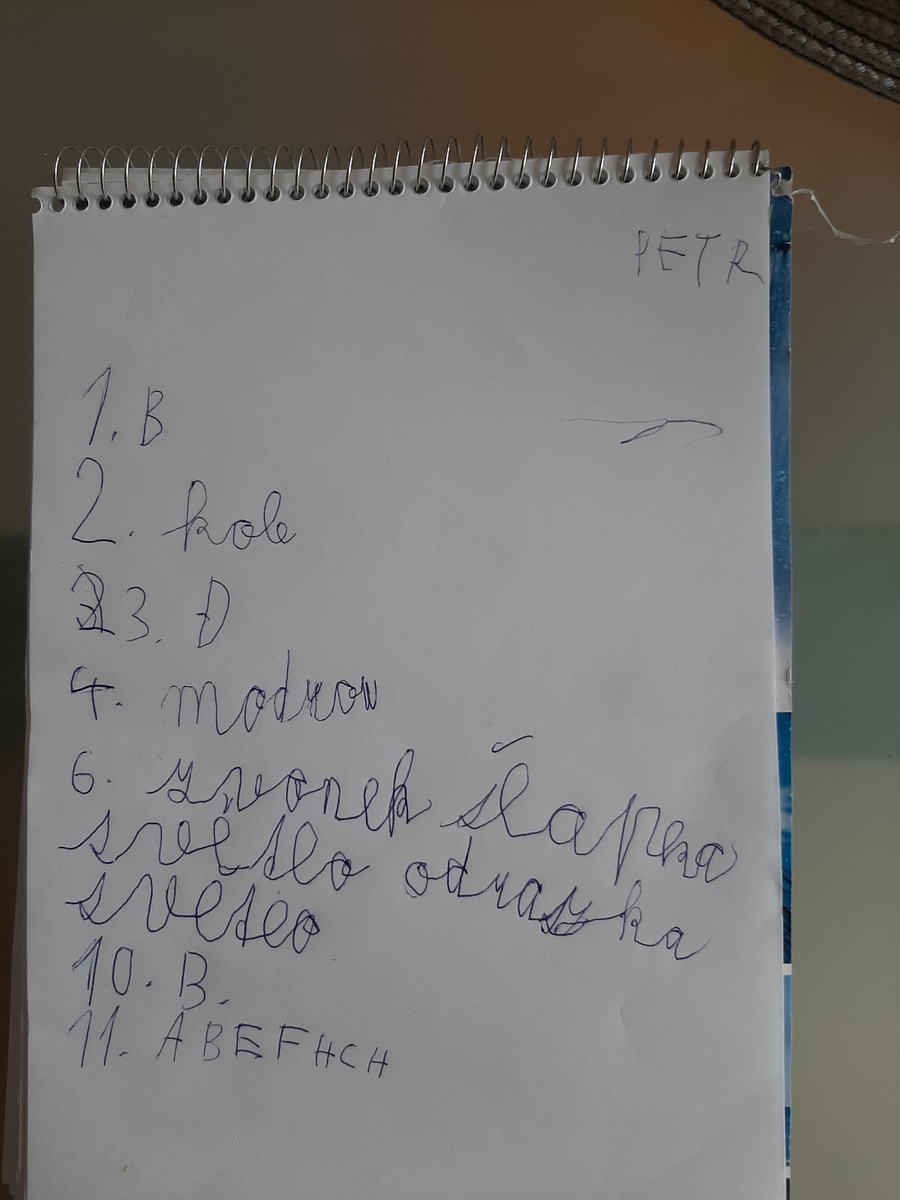 PETR
1. B
2. kole
3. D
4. modrou
6. zvonek šlapka
světlo odrazka
světlo
10. B.
11. A B E F H CH